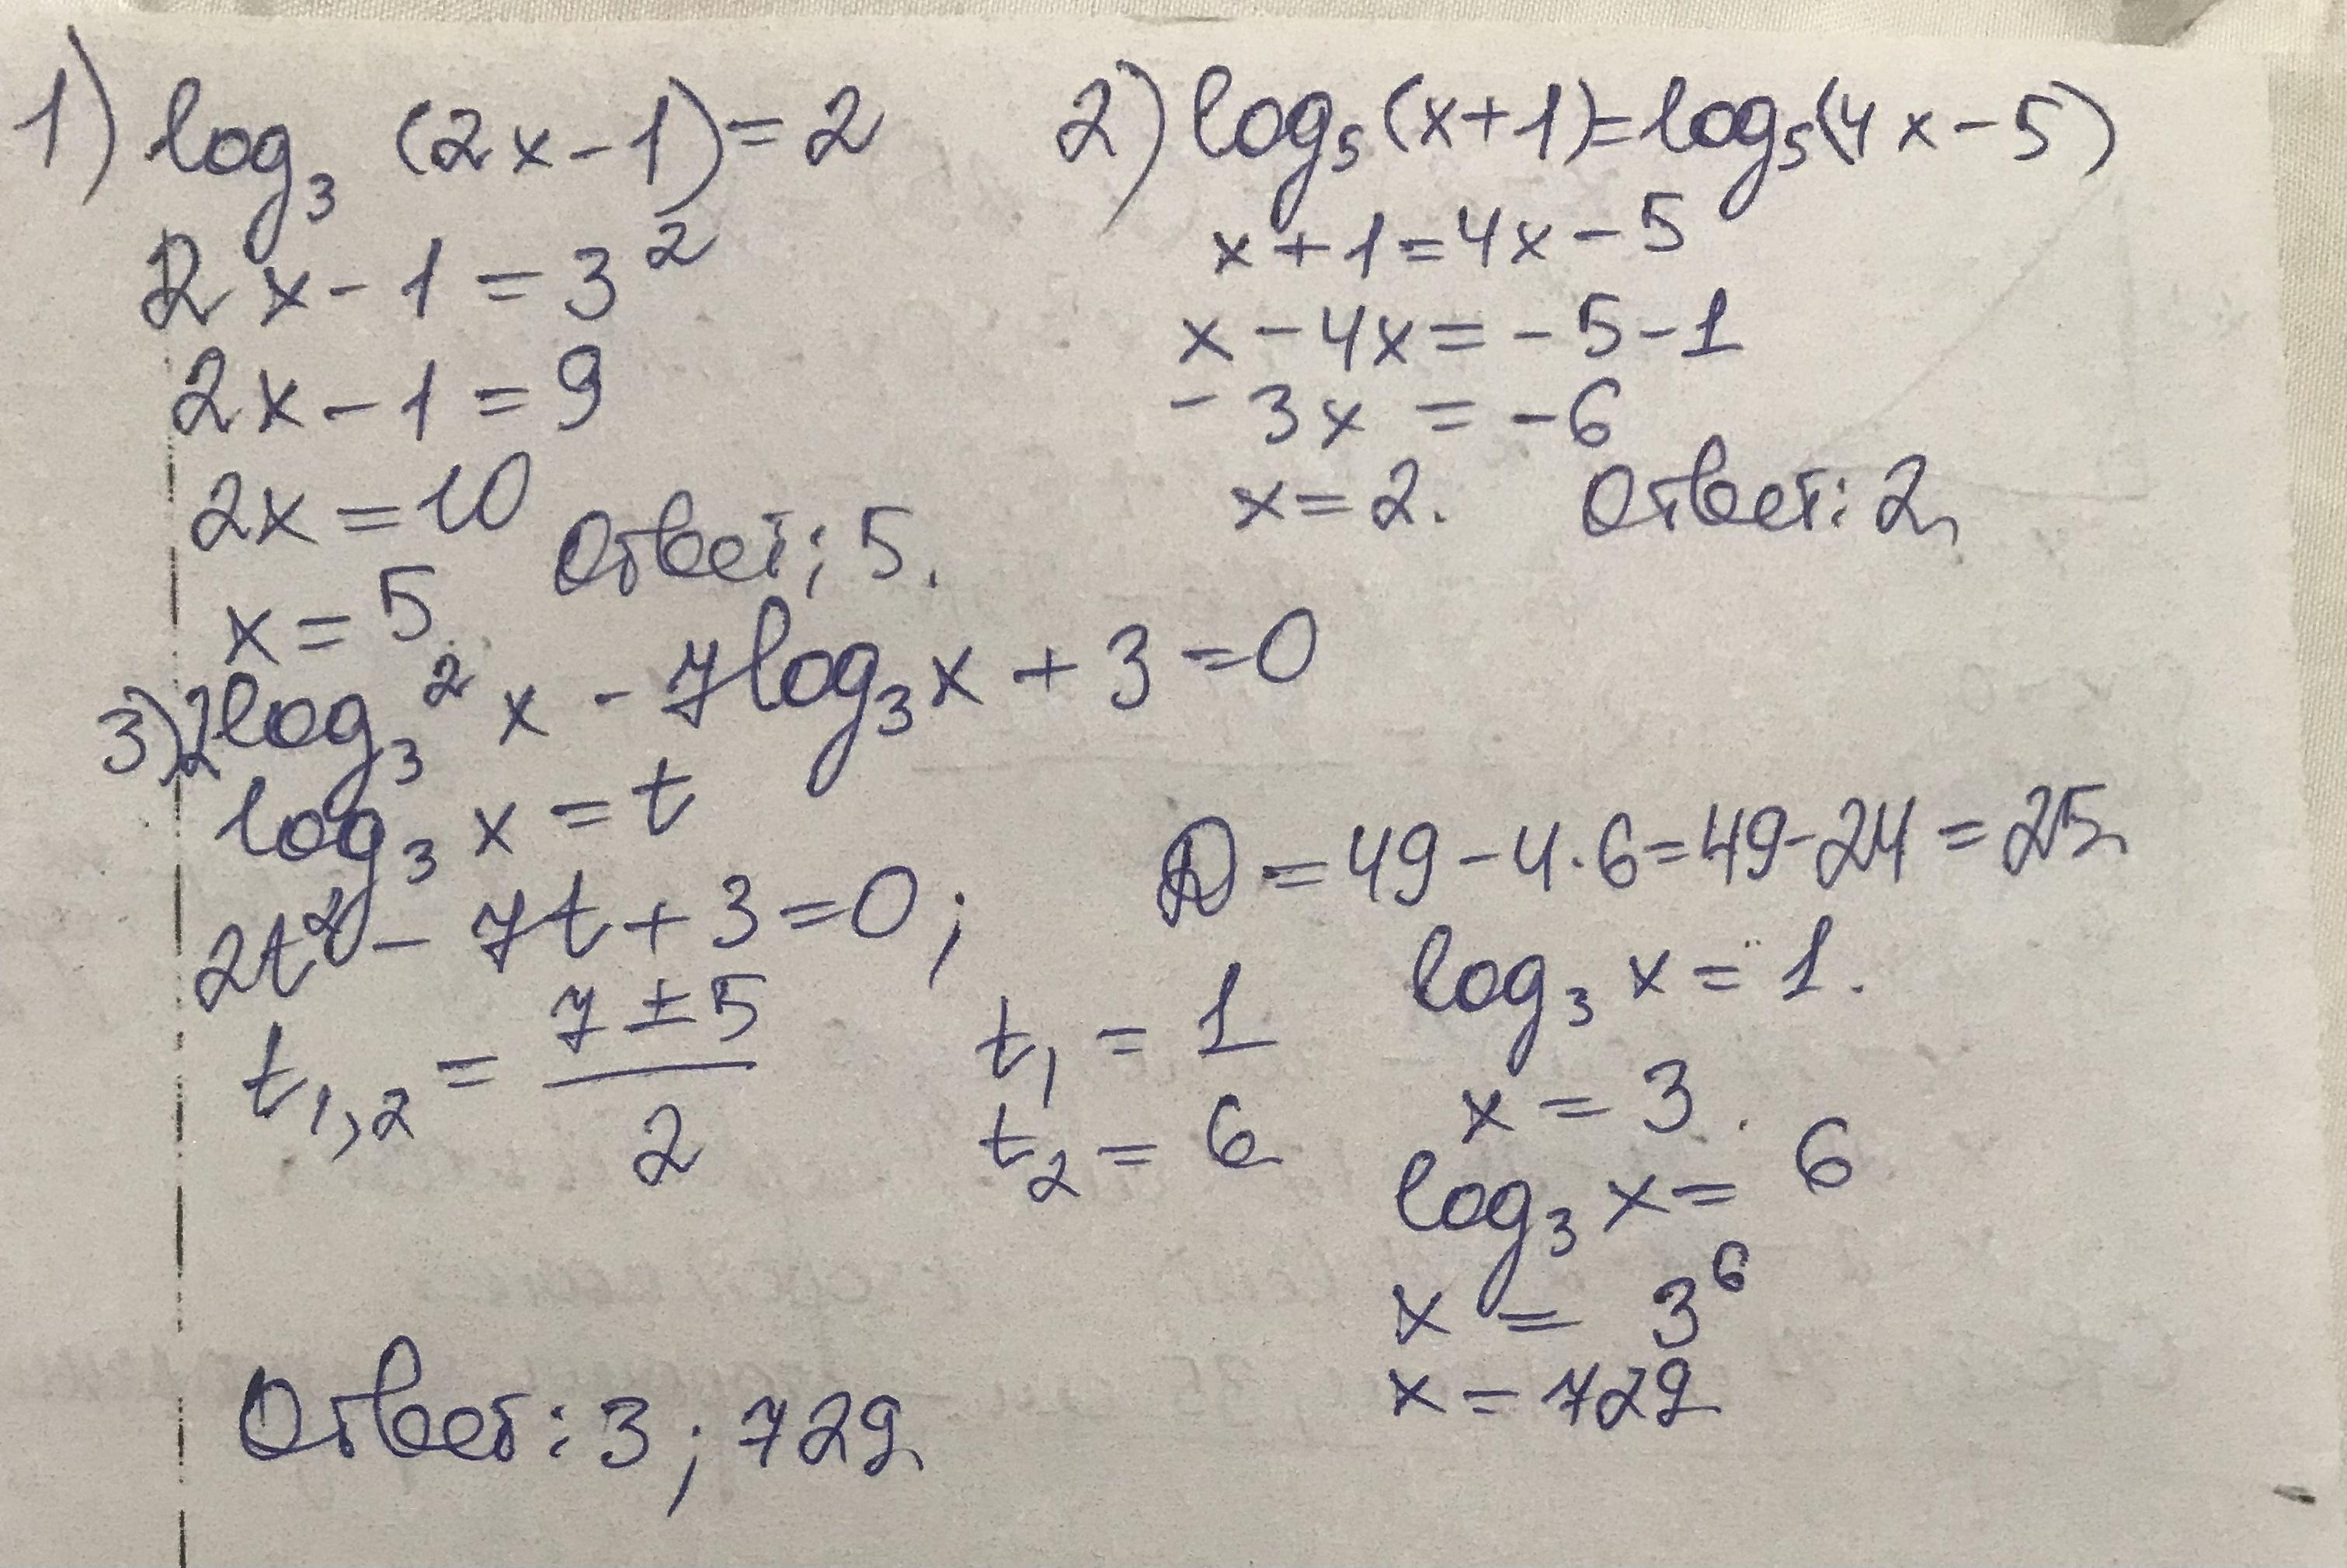 1) log₃ (2x-1)=2
2x-1=3²
2x-1=9
2x=10
x=5. Ответ: 5.
2) log₅(x+1)=log₅(4x-5)
x+1=4x-5
x-4x=-5-1
-3x=-6
x=2. Ответ: 2.
3) 2log₃² x - 7log₃x + 3=0
log₃ x=t
2t²-7t+3=0; D=49-4·6=49-24=25
t₁,₂ = (7±5)/2
t₁ = 1
t₂ = 6
log₃ x = 1.
x = 3.
log₃ x = 6
x = 3⁶
x = 729
Ответ: 3; 729